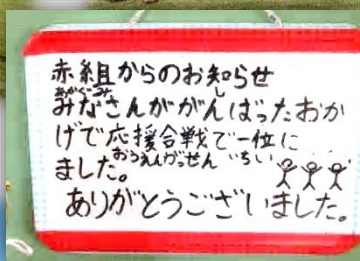 赤組からのお知らせ
あかぐみ し
みなさんががんばったおか
げで応援合戦で一位に
おうえんがっせん いちい
ました。
ありがとうございました。